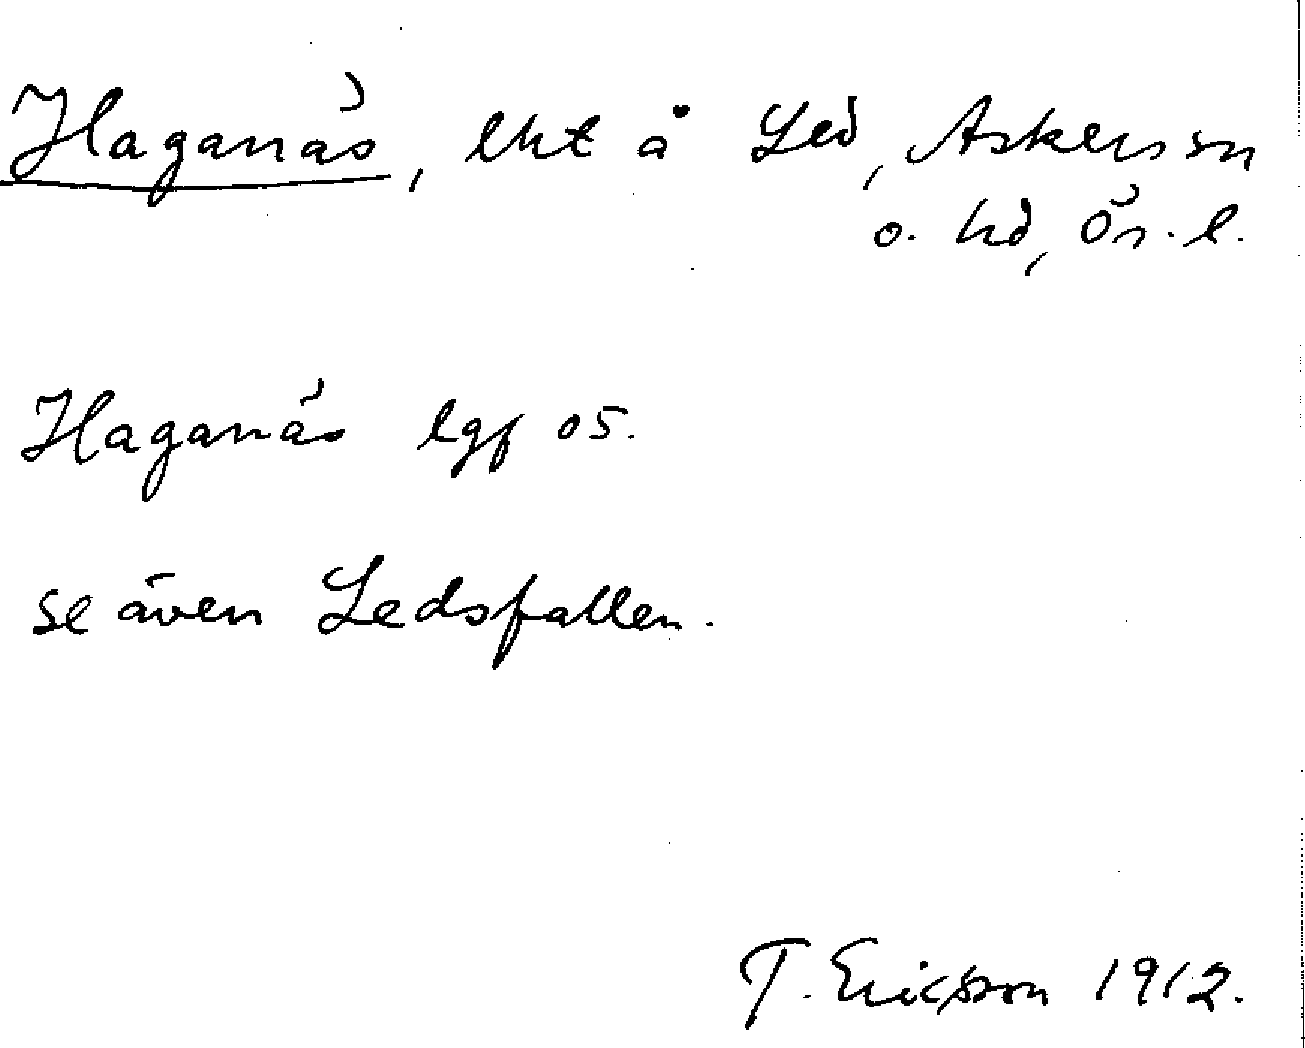 Haganäs, lht å Led, Askers sn
o. hd, Ör. l.
Haganäs lgf 05.
se även Ledsfallen.
T. Ericsson 1912.